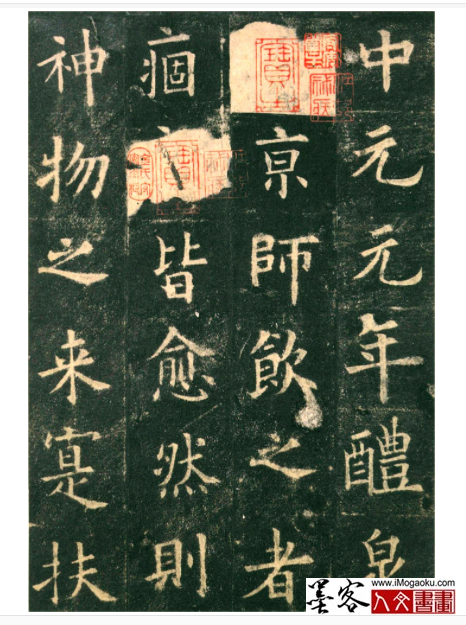 中元元年醴泉
亰師飲之者
痼皆愈然則
神物之来寔扶
www.iMogaoku.com
墨客人文書畫